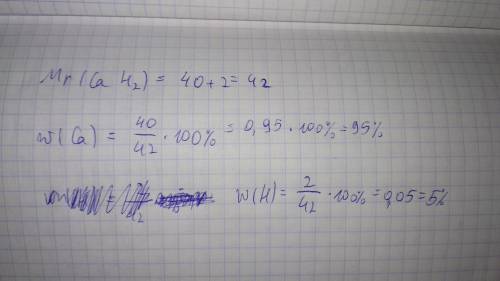 Mr (Ca H₂) = 40 + 2 = 42
w(Ca) = 40/42 · 100% = 0,95 · 100% = 95%
w(H) = 2/42 · 100% = 0,05 = 5%